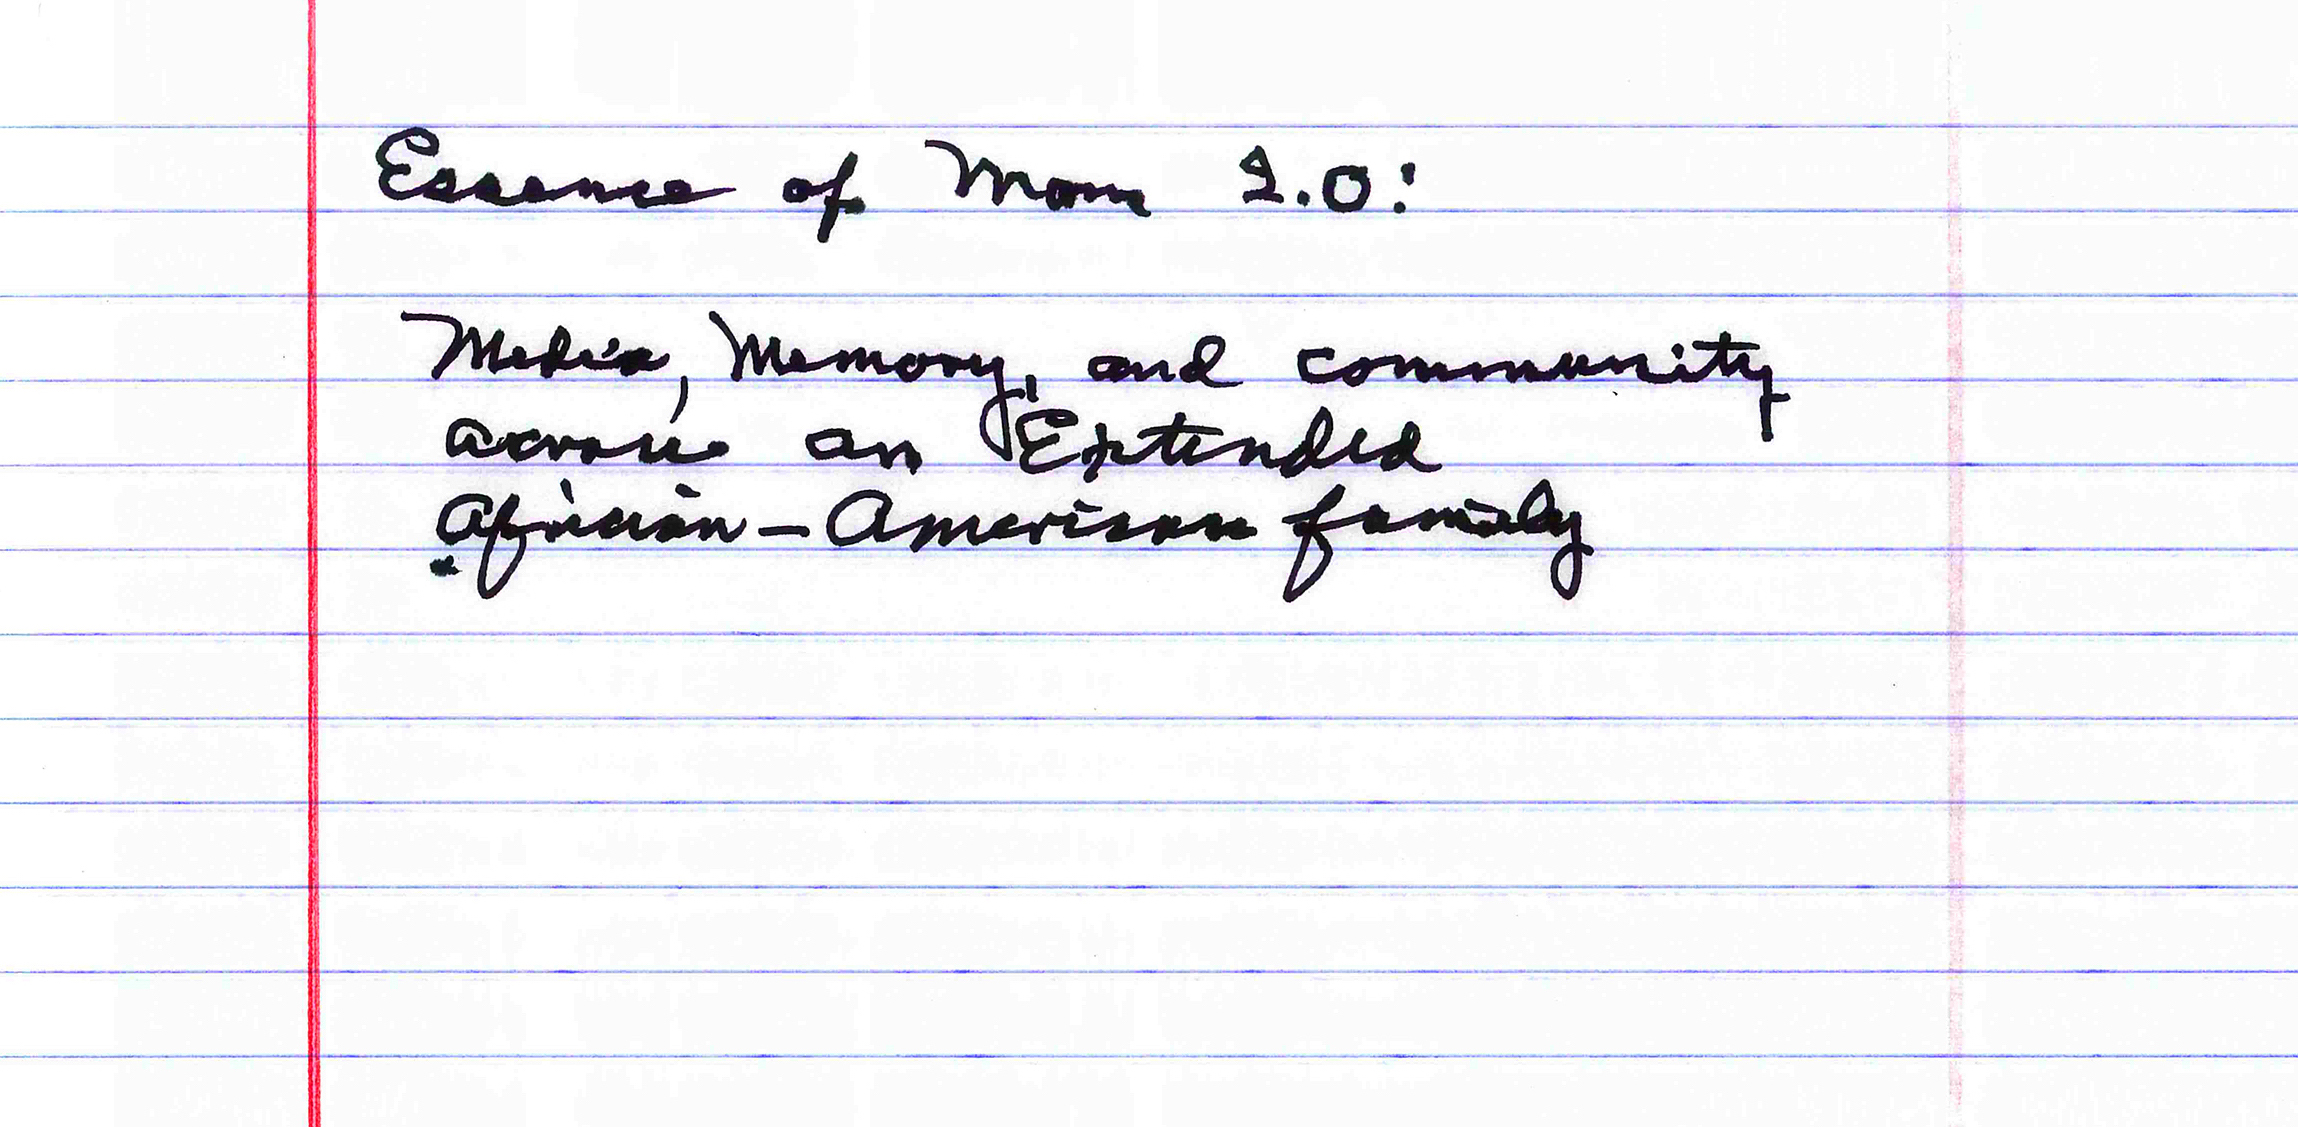 Essence of Mom 2.0:
Media, Memory, and community
across an Extended
African-American family